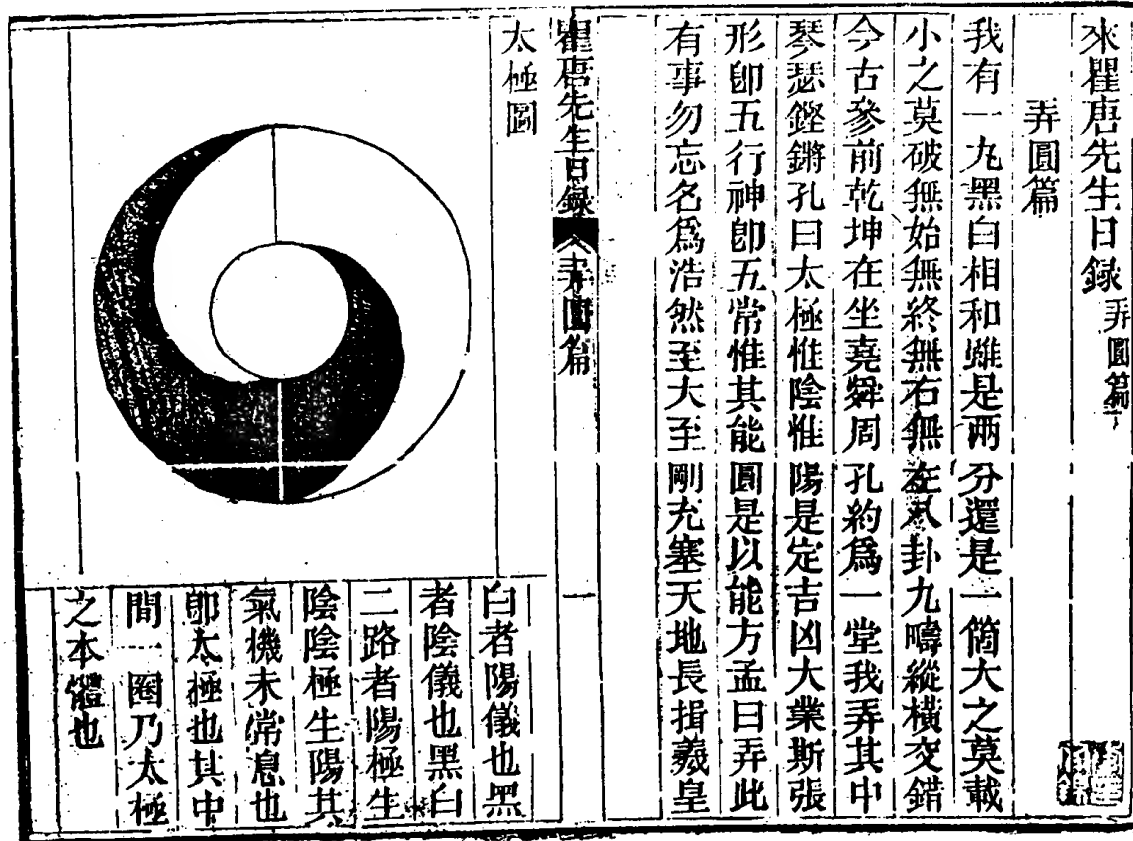 來瞿唐先生日錄 弄圓篇
弄圓篇
我有一丸黑白相和雖是兩分還是一箇大之莫載
小之莫破無始無終無右無左八卦九疇縱橫交錯
今古參前乾坤在坐堯舜周孔約爲一堂我弄其中
琴瑟鏗鏘孔曰太極惟陰惟陽是定吉凶大業斯張
形卽五行神卽五常惟其能圓是以能方孟曰弄此
有事勿忘名爲浩然至大至剛充塞天地長揖羲皇
瞿唐先生日錄 弄圓篇 一
太極圖
白者陽儀也黑
者陰儀也黑白
二路者陽極生
陰陰極生陽其
氣機未常息也
卽太極也其中
間一圈乃太極
之本體也